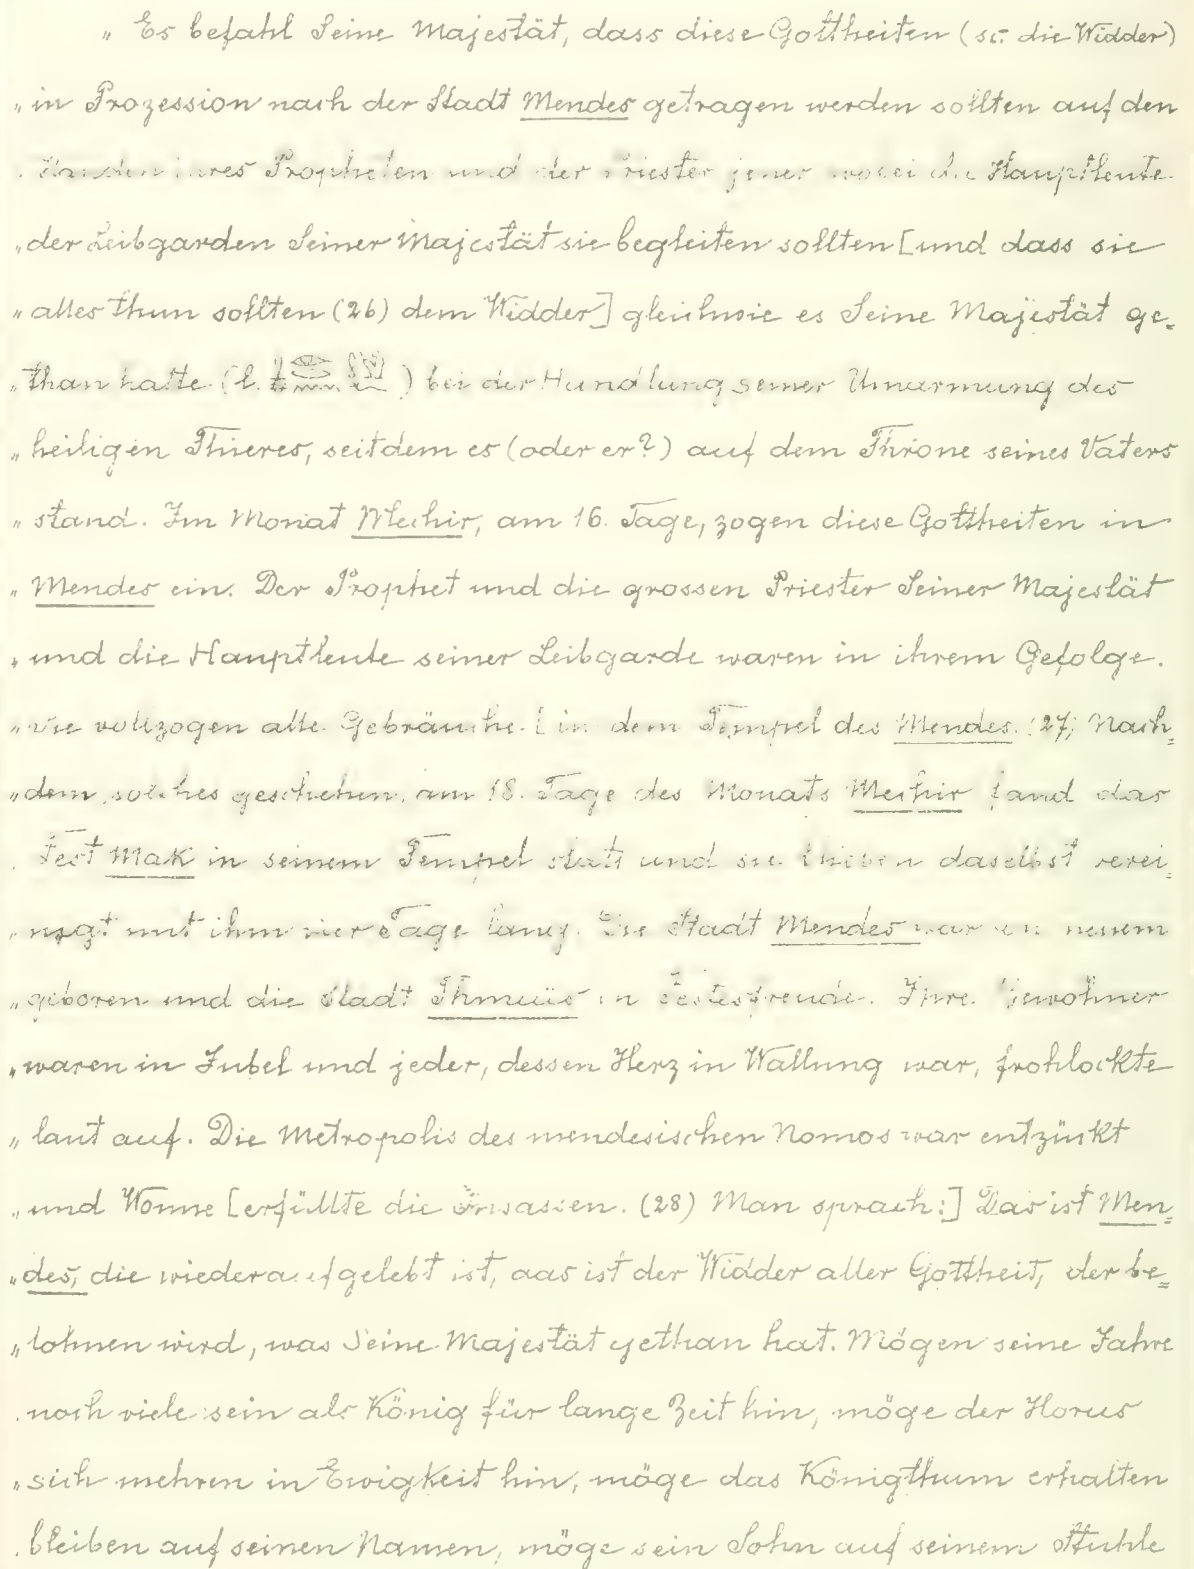 „ Es befahl Seine Majestät, dass diese Gottheiten (sc. die Widder)
„ in Prozession nach der Stadt Mendes getragen werden sollten auf den
Händen ihres Propheten und der Priester jener wobei die Hauptleute
„ der Leibgarden Seiner Majestät sie begleiten sollten [und dass sie
„ alles thun sollten (26) dem Widder] gleichwie es Seine Majestät ge=
„ than hatte (l. ) bei der Handlung seiner Umarmung des
„ heiligen Thieres, seitdem es (oder er?) auf dem Throne seines Vaters
„ stand. Im Monat Mechir, am 16. Tage, zogen diese Gottheiten in
„ Mendes ein. Der Prophet und die grossen Priester Seiner Majestät
„ und die Hauptleute seiner Leibgarde waren in ihrem Gefolge.
„ Sie vollzogen alle Gebräuche [in dem Tempel des Mendes. (27) Nach=
„ dem solches geschehen, am 18. Tage des Monats Mechir fand das
Fest Mak in seinem Tempel statt und sie blieben daselbst verei=
„ nigt mit ihm vier Tage lang. Die Stadt Mendes war von neuem
„ geboren und die Stadt Thmuis in Festesfreude. Ihre Bewohner
„ waren in Jubel und jeder, dessen Herz in Wallung war, frohlockte
„ laut auf. Die Metropolis des mendesischen Nomos war entzückt
„ und Wonne [erfüllte die Insassen. (28) Man sprach:] Das ist Men=
„ des, die wiederaufgelebt ist, das ist der Widder aller Gottheit, der be=
„ lohnen wird, was Seine Majestät gethan hat. Mögen seine Jahre
noch viele sein als König für lange Zeit hin, möge der Horus
„ sich mehren in Ewigkeit hin, möge das Königthum erhalten
bleiben auf seinen Namen, möge sein Sohn auf seinem Stuhle